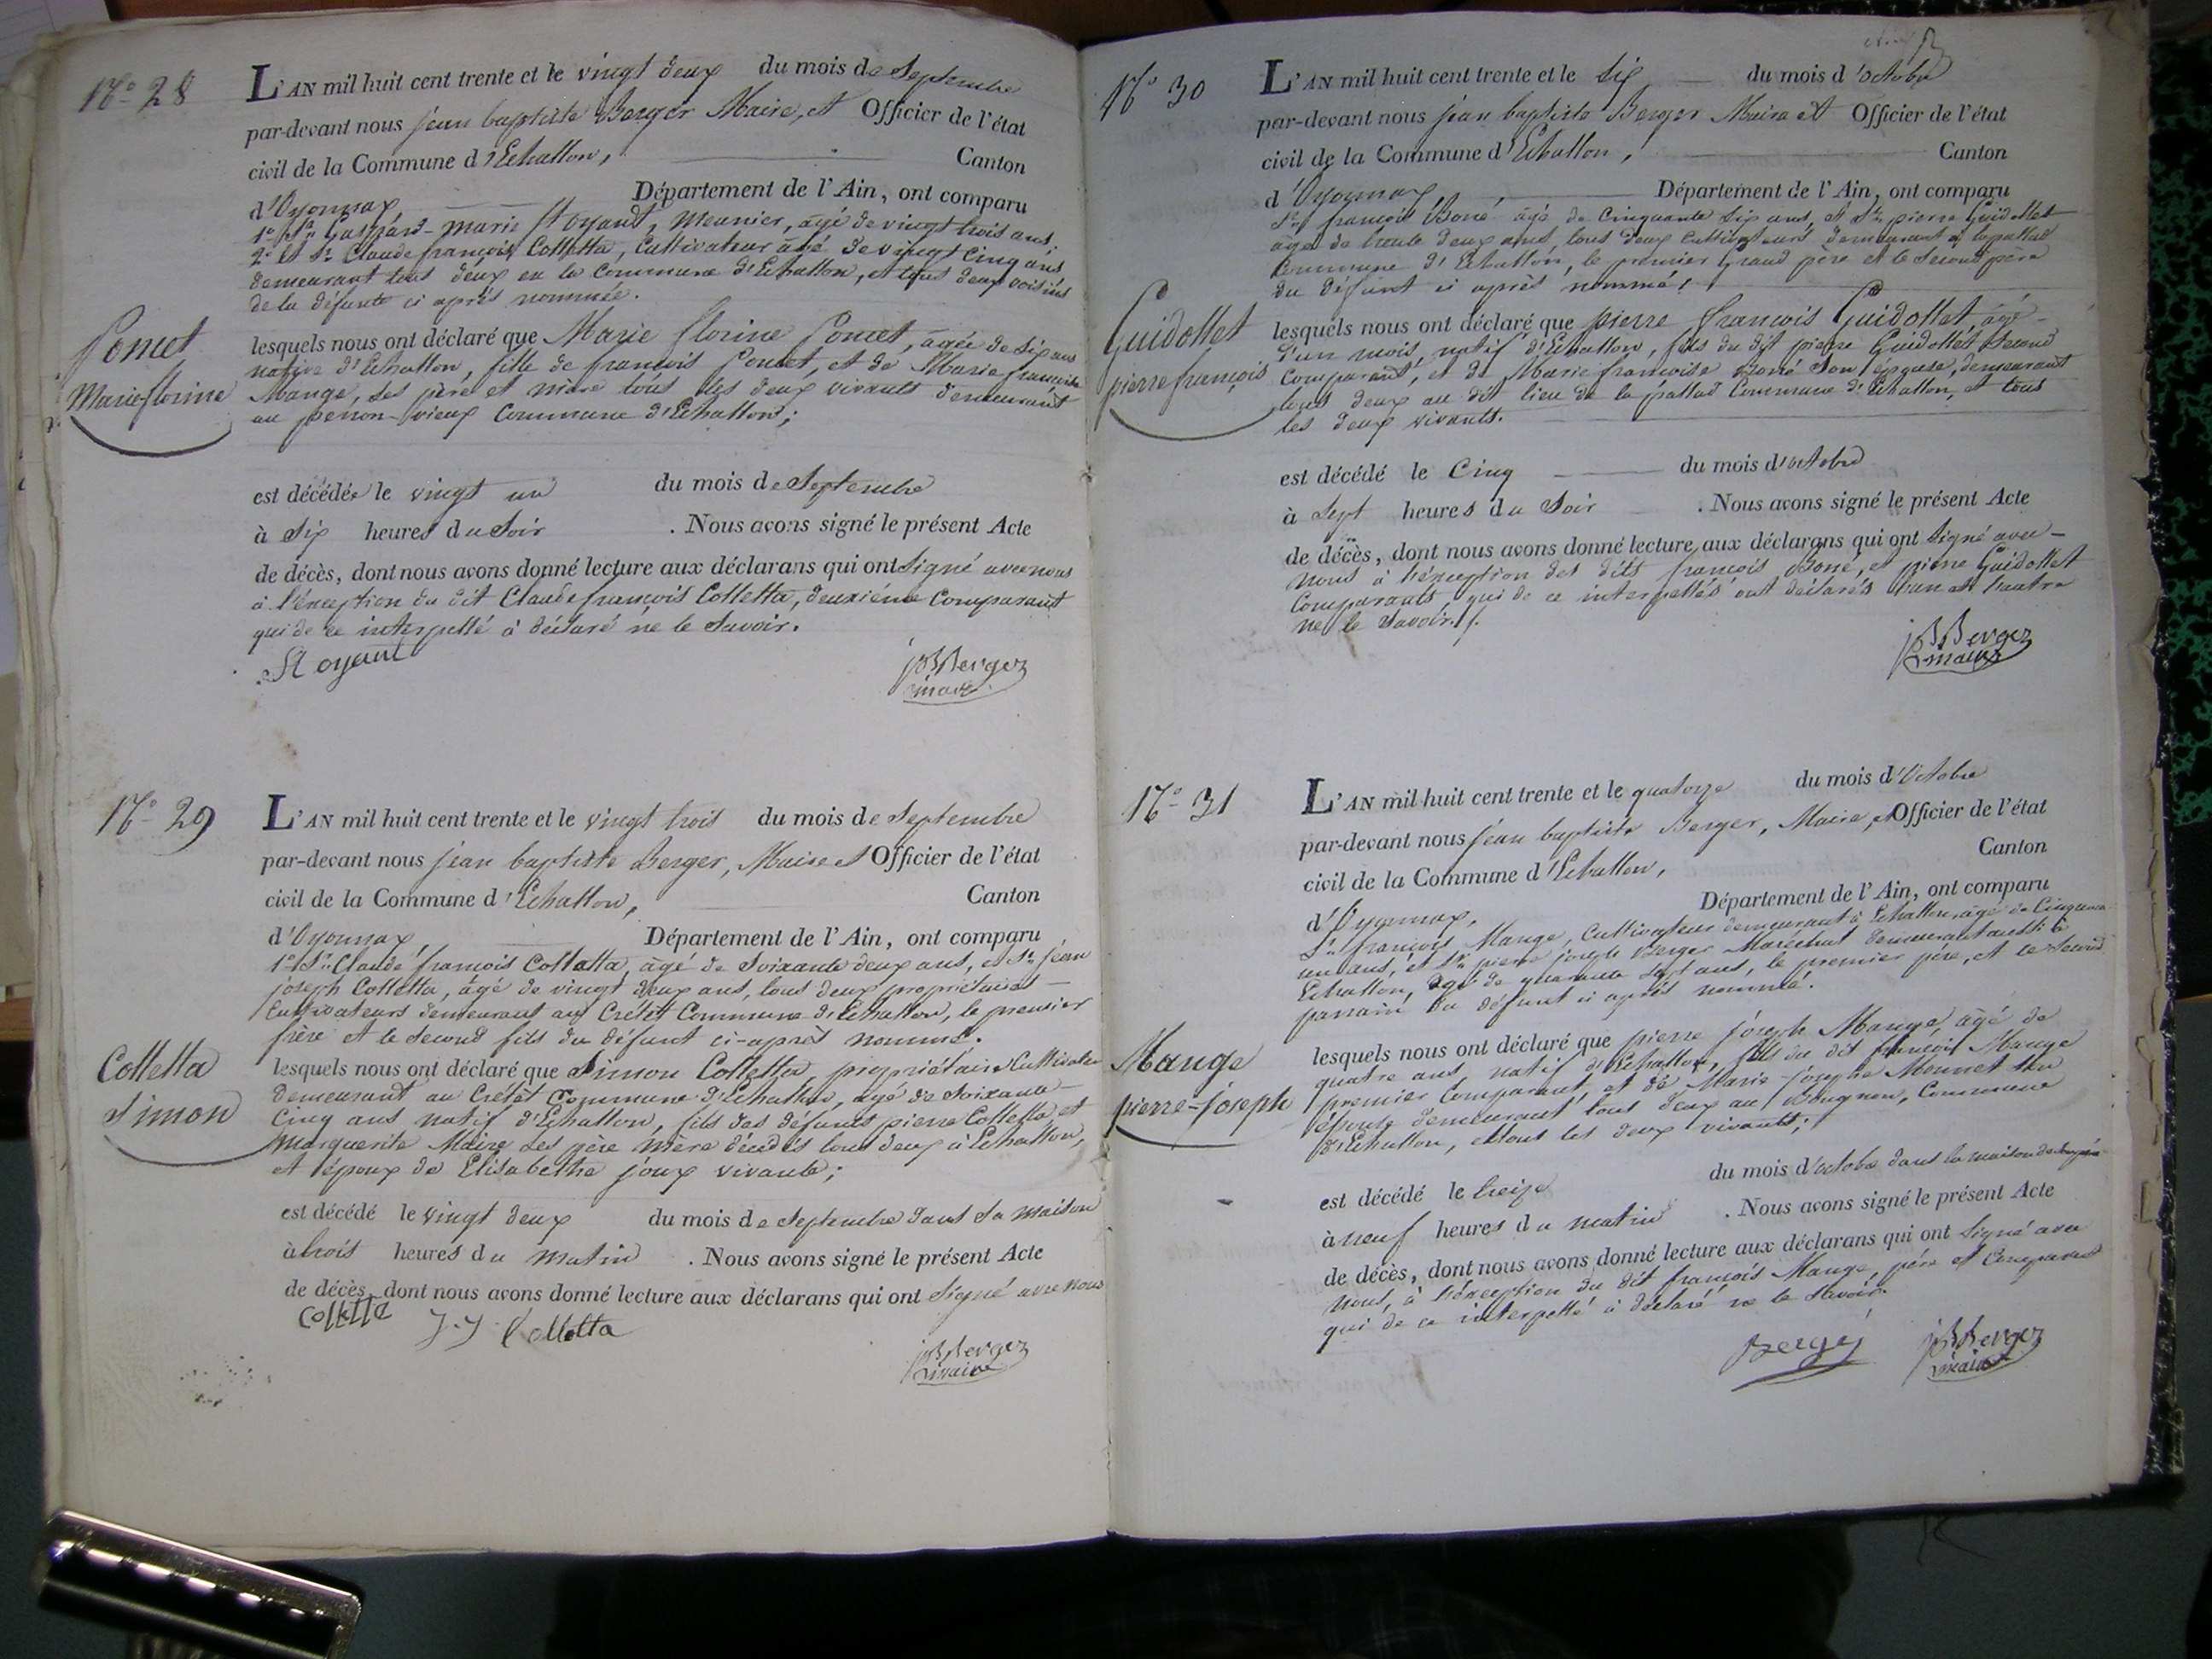 N.° 28
L'AN mil huit cent trente et le vingt deux du mois de Septembre
par-devant nous jean baptiste Berger Maire, et Officier de l'état
civil de la Commune d'Echallon, Canton
d'Oyonnax Département de l'Ain, ont comparu
1° Sr. Gaspard-marie St oyant, Meunier, âgé de vingt trois ans,
2° et Sr. Claude françois Colletta, Cultivateur âgé de vingt cinq ans,
demeurant tous deux en la Commune d'Echallon, et tous deux voisins
de la défunte ci après nommée.
Poncet
Marie florine
lesquels nous ont déclaré que Marie florine Poncet, âgée de six ans
native d'Echallon, fille de françois Poncet, et de Marie françoise
Mange, ses père et mère tous les deux vivants demeurant
au perron-vieux Commune d'Echallon;
est décédée le vingt un du mois de Septembre
à Six heures du Soir . Nous avons signé le présent Acte
de décès, dont nous avons donné lecture aux déclarans qui ont Signé avec nous
à l'éxception du dit Claude françois Colletta, deuxième Comparant
qui de ce interpellé à déclaré ne le Savoir.
St oyant
JBBerger
maire
N.° 29
L'AN mil huit cent trente et le vingt trois du mois de Septembre
par-devant nous jean baptiste Berger, Maire et Officier de l'état
civil de la Commune d'Echallon, Canton
d'Oyonnax Département de l'Ain, ont comparu
1° Sr. Claude françois Colletta, âgé de Soixante deux ans, et Sr. jean
joseph Colletta, âgé de vingt deux ans, tous deux propriétaires
Cultivateurs demeurant au Crétét Commune d'Echallon, le premier
frère et le Second fils du défunt ci-après nommé.
Colletta
Simon
lesquels nous ont déclaré que Simon Colletta, propriétaire Cultivateur
demeurant au Crétét Commune d'Echallon, âgé de Soixante
Cinq ans natif d'Echallon, fils des défunts pierre Colletta, et
Marguerite Maire ses père mère décédés tous deux à Echallon,
et époux de Elisabethe joux vivante;
est décédé le vingt deux du mois de Septembre dans Sa maison
à trois heures du matin . Nous avons signé le présent Acte
de décès, dont nous avons donné lecture aux déclarans qui ont Signé avec nous
Colletta J.J Colletta
JBBerger
maire
N.° 30
L'AN mil huit cent trente et le Six du mois d'octobre
par-devant nous jean baptiste Berger Maire et Officier de l'état
civil de la Commune d'Echallon, Canton
d'Oyonnax, Département de l'Ain, ont comparu
Sr. françois Boné âgé de Cinquante Six ans, et Sr. pierre Guidollet
âgé de trente deux ans, tous deux Cultivateurs demeurant à lapallud
Commune d'Echallon, le premier Grand père et le Second père
du défunt ci après nommé;
Guidollet
pierre françois
lesquels nous ont déclaré que pierre françois Guidollet, âgé
d'un mois, natif d'Echallon, fils du dit pierre Guidollet Second
Comparant, et de Marie françoise Boné Son épouse, demeurant
tous deux au dit lieu de la pallud Commune d'Echallon, et tous
les deux vivants.
est décédé le Cinq du mois d'octobre
à Sept heures du Soir . Nous avons signé le présent Acte
de décès, dont nous avons donné lecture aux déclarans qui ont Signé avec
nous à l'éxception des dits françois Boné, et pierre Guidollet
Comparants, qui de ce interpellés ont déclarés l'un et l'autre
ne le Savoir.
JBBerger
maire
N.° 31
L'AN mil huit cent trente et le quatorze du mois d'Octobre
par-devant nous jean baptiste Berger, Maire, et Officier de l'état
civil de la Commune d'Echallon, Canton
d'Oyonnax, Département de l'Ain, ont comparu
Sr. françois Mange, Cultivateur demeurant à Echallon, âgé de Cinquante
un ans, et Sr. pierre joseph Berger Maréchal demeurant aussi à
Echallon, âgé de quarante Sept ans, le premier père, et le Second
parrain du défunt ci après nommé.
Mange
pierre-joseph
lesquels nous ont déclaré que pierre joseph Mange âgé de
quatre ans natif d'Echallon, fils du dit françois Mange
premier Comparant, et de Marie-josephe Monnet Son
épouse demeurant tous deux au Bugnon, Commune
d'Echallon, et tous les deux vivants;
est décédé le treize du mois d'octobre dans la maison de Son père
à neuf heures du matin . Nous avons signé le présent Acte
de décès, dont nous avons donné lecture aux déclarans qui ont Signé avec
nous, à l'éxception du dit françois Mange, père et Comparant
qui de ce interpellé à déclaré ne le Savoir.
Berger
JBBerger
maire